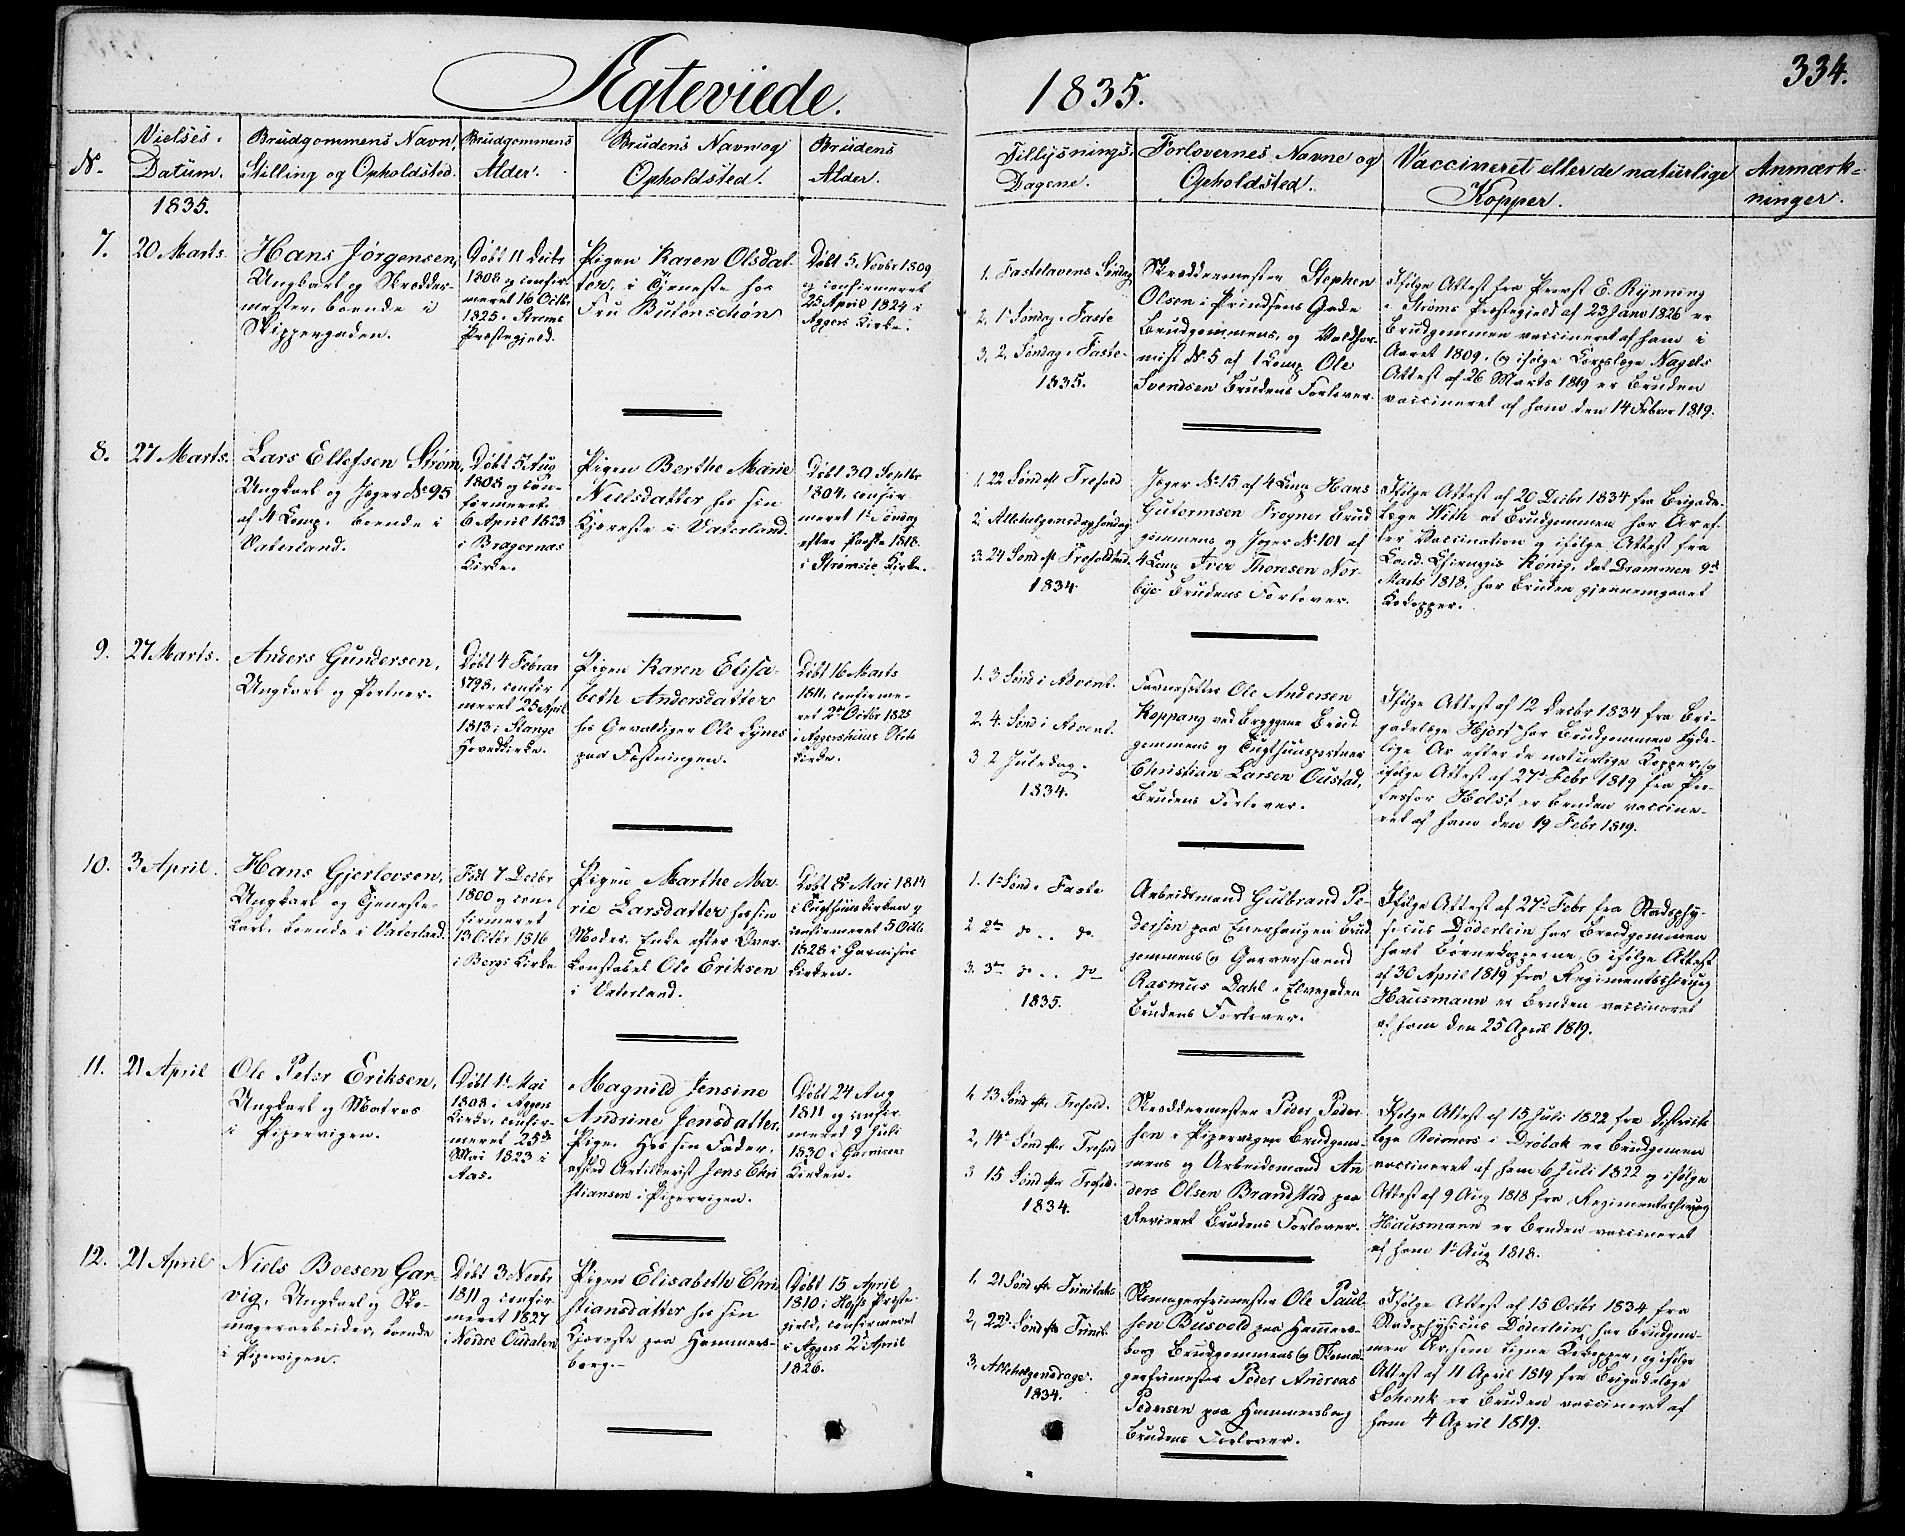 334.
Ægteviede. 1835.
N.
Vielses-
Datum.
Brudgommens Navn,
Stilling og Opholdsted.
Brudgommens
Alder.
Brudens Navn og
Opholdsted.
Brudens
Alder.
Tillysnings-
Dagene.
Forlovernes Navne og
Opholdsted.
Vaccineret eller de naturlige
Kopper.
Anmærk-
ninger.
1835.
7.
20 Marts.
Hans Jørgensen,
Ungkarl og Skrædder-
mester, boende i
Skippergaden.
Døbt 11 Decbr
1808 og confir-
meret 16 Octbr
1825 i Strøms
Præstegjeld.
Pigen Karen Olsdat-
ter, i Tjeneste hos
Fru Butenschøn
Døbt 5 Novbr 1809
og confirmeret
25 April 1824 i
Aggers Kirke.
1. Fastelavens Søndag
2, 1 Søndag i Faste
3, 2, Søndag i Faste-
1835.
Skræddermester Stephen
Olsen i Prindsens Gade
Brudgommens, og Valdhor-
nist N. 5 af 1 Comp Ole
Svendsen Brudens Forlover.
Ifølge Attest fra Provst E. Rÿnning
i Strøms Præstegjeld af 23 Janr 1826 er
Brudgommen vaccineret af ham i
Aaret 1809, og ifølge Korpslæge Nagels
Attest af 26 Marts 1819 er Bruden
vaccineret af ham den 14 Februar 1819.
8.
27 Marts.
Lars Ellefsen Strøm,
Ungkarl og Jæger N. 95
af 4 Comp. boende i
Vaterland.
Døbt 5 Aug
1808 og con-
firmeret
6 April 1823
i Bragernæs
Kirke.
Pigen Berthe Marie
Nielsdatter hos sin
Kjæreste i Vaterland.
Døbt 30 Septbr
1804, confir-
meret 1 Søndag
efter Paaske 1818
i Strømsøe Kirke.
1. 22 Sønd eft Trefold
2. Allehelgensdagssøndag
3. 24 Sønd eft Trefoldhed.
1834
Jæger No. 15 af 4 Comp Hans
Gutormsen Frogner Brud
gommens og Jæger N. 101 af
4 Comp Iver Thoresen Nor-
bÿe Brudens Forlover.
Ifølge Attest af 20 Decbr 1834 fra Brigade-
læge With at Brudgommen har Ar ef-
ter Vaccination og ifølge Attest fra
Cand. Chirurgis König, dat Drammen 9
Marts 1818, har Bruden gjennemgaaet
Kokopper.
9.
27 Marts.
Anders Gundersen,
Ungkarl og Portner.
Døbt 4 Februar
1798, confir
meret 25 April
1813 i Stange
Hovedkirke.
Pigen Karen Elisa-
beth Andersdatter
hos Gevaldiger Ole Lÿnes
paa Fæstningen.
Døbt 16 Marts
1811, confirme-
ret 2 Octbr 1825
i Aggershuus Slots
Kirke.
1. 3 Sønd i Advent.
2. 4. Sønd i Advent.
3 2 Juledag.
1834.
Favnesetter Ole Andersen
Koppang ved Bryggene Brud
gommens og Tugthuusportner
Christian Larsen Oustad,
Brudens Forlover.
Ifølge Attest af 12 Decbr 1834 fra Bri-
gadelæge Hjort har Brudgommen tyde-
lige Ar efter de naturlige Kopper, og
ifølge Attest af 27 Febr 1819 fra Pro-
fessor Holst er Bruden vaccine-
ret af ham den 19 Febr 1819.
10.
3 April.
Hans Gjerlovsen,
Ungkarl og Tjeneste-
karl, boende i Vaterland.
Født 7 Decbr
1800 og con-
firmeret
13 Octbr 1816
i Bergs Kirke
Pigen Marthe Ma-
rie Larsdatter hos sin
Moder, Enke efter Over-
konstabel Ole Eriksen
i Vaterland.
Døbt 8 Mai 1814
i Tugthuuskirken og
confirmeret 5 Octbr
1828 i Garnisons
Kirken.
1. 1 Sønd i Faste
2 2 do .. do.
3. 3 do .. do
1835.
Arbeidsmand Gulbrand Pe-
dersen paa Enerhaugen Brud
gommens og Garversvend
Rasmus Dahl i Elvegaden
Brudens Forlover.
Ifølge Attest af 27 Febr fra Stadsphy-
sicus Döderlein har Brudgommen
havt Børnekopperne, og ifølge Attest
af 30 April 1819 fra Regimentschirurg
Hausmann er Bruden vaccineret
af ham den 25 April 1819.
11.
21 April
Ole Peter Eriksen,
Ungkarl og Matros
i Pipervigen.
Døbt 1 Mai
1808 i Aggers
Kirke, confir-
meret 25
Mai 1823 i
Aas.
Magnild Jensine
Andrine Jensdatter,
Pige. Hos sin Fader,
afsked Artillerist Jens Chri
stiansen i Pipervigen.
Døbt 24 Aug
1811 og confir
meret 9 Juli
1830 i Garnisons
Kirken.
1. 13 Sønd eft. Trefold.
2, 14 Sønd eft Trefold
3 15 Sønd eft Trefold.
1834.
Skræddermester Peder Peder
sen i Pipervigen Brudgom-
mens og Arbeidsmand An
ders Olsen Brandstad paa
Revieret Brudens Forlover.
Ifølge Attest af 15 Juli 1822 fra District
læge Reimers i Drøbak er Brudgommen
vaccineret af ham 6 Juli 1822 og ifølge
Attest af 9 Aug 1818 fra Regimentschirurg
Hausmann er Bruden vaccineret
af ham 1 Aug 1818.
12.
21 April
Niels Boesen Gar-
vig, Ungkarl og Sko-
magerarbeider, boende
i Pipervigen.
Døbt 3 Novbr
1811 og confir
meret 1827
i Nordre Oudalen
Pigen Elisabeth Chri
stiansdatter hos sin
Kjæreste paa Hammers-
borg.
Døbt 15 April
1810 i Præste
gjeld, confirmeret
i Aggers 2 April
1826.
1, 21 Sønd eft Trinitatis
2, 22 Sønd eft Trinit.
3, Allehelgensdage.
1834.
Skomagermester Ole Paul-
sen Busvold paa Hammers-
borg Brudgommens og Skoma-
germester Peder Andreas
Pedersen paa Hammersborg
Brudens Forlover.
Ifølge Attest af 15 Octbr 1834 fra
Stadsphysicus Döderlein, har Brudgom-
men Ar som ligne Kokopper, og ifølge
Attest af 11 April 1819 fra Brigadelæge
Schenk er Bruden vaccineret af
ham 4 April 1819.